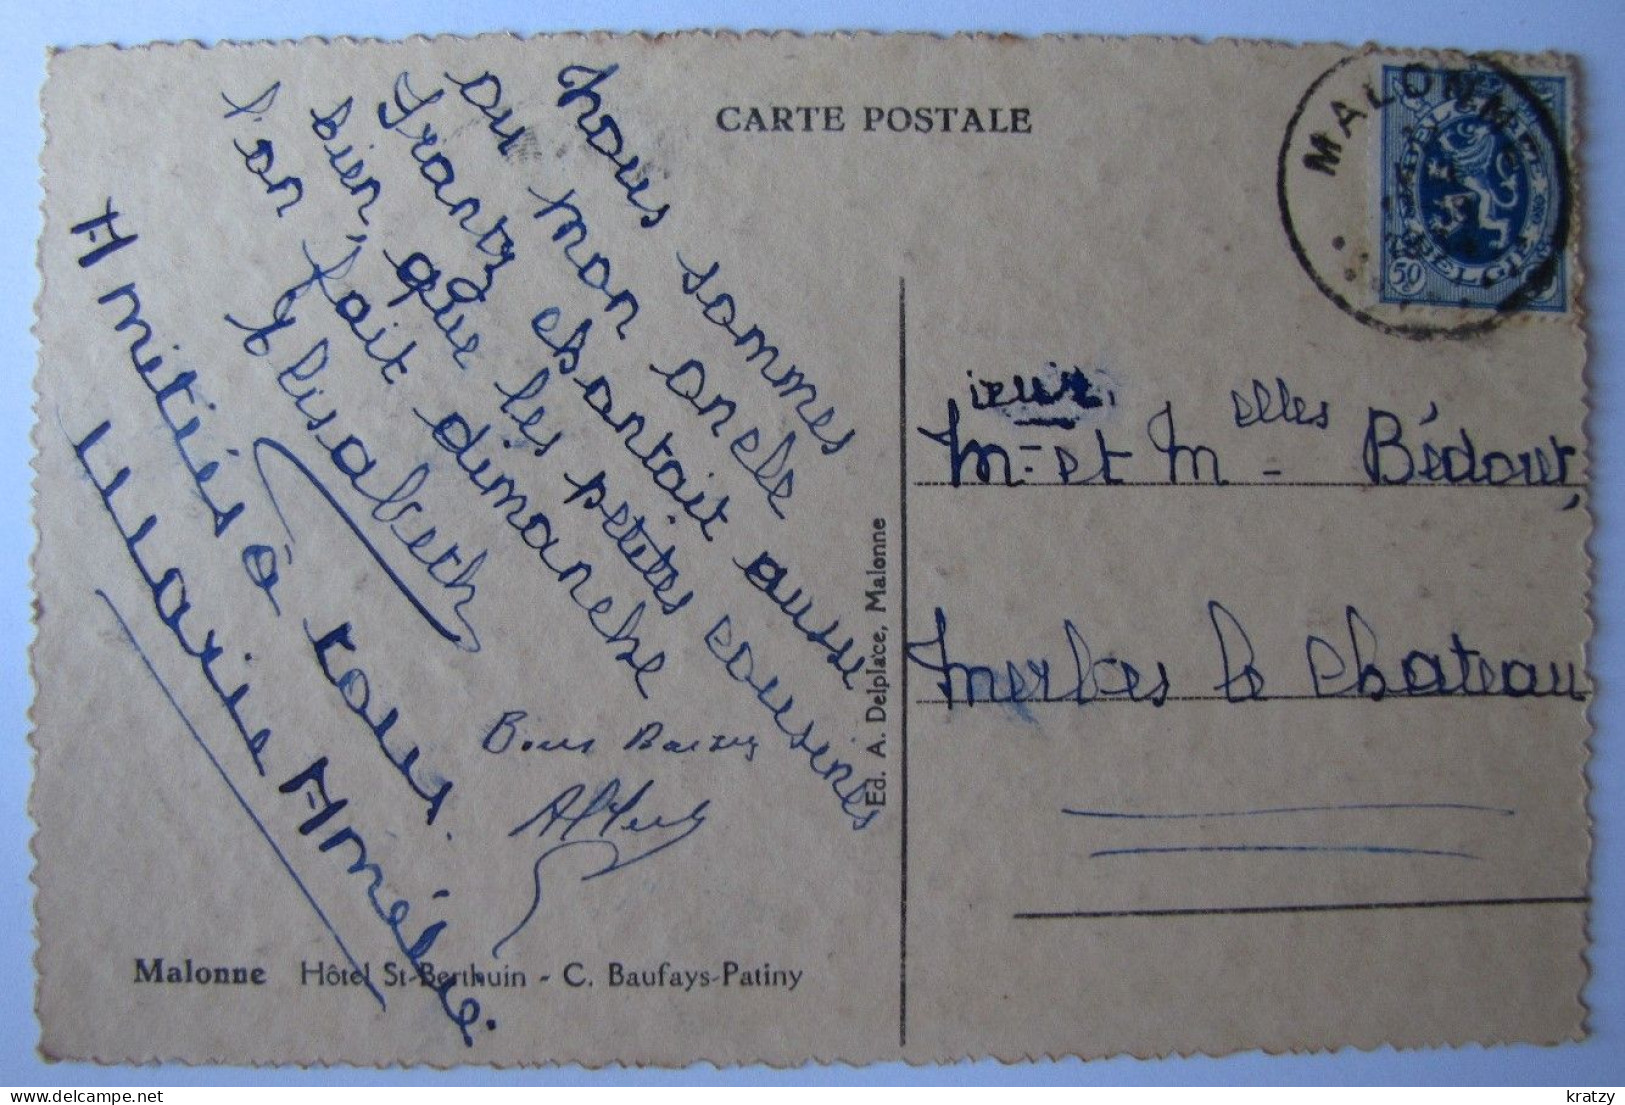 CARTE POSTALE
Nous sommes
ou mon oncle
Frantz chantait aussi
bien, que les petites cousines
l'on fait dimanche
Elisabeth
Amitiés à tous.
Marie Amélie.
Bons Baisers
Malonne Hôtel St-Berthuin - C. Baufays-Patiny
Ed. A. Delplace, Malonne
MALONNE
BELGIE
50
M ieur et M elles Bédoret,
Merbes le Chateau
kratzy